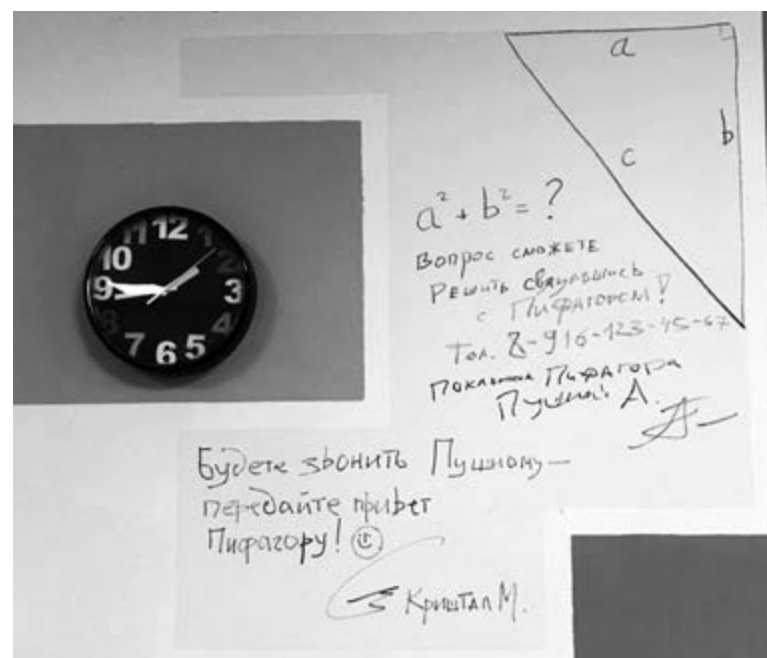 12
1
2
3
4
5
6
7
8
9
10
11
a
b
c
a² + b² = ?
Вопрос сможете
Решить связавшись
с Пифагором!
Тел. 8-916-123-45-67
Поклонник Пифагора
Пушной А.
Будете звонить Пушному —
передайте привет
Пифагору!
Криштал М.